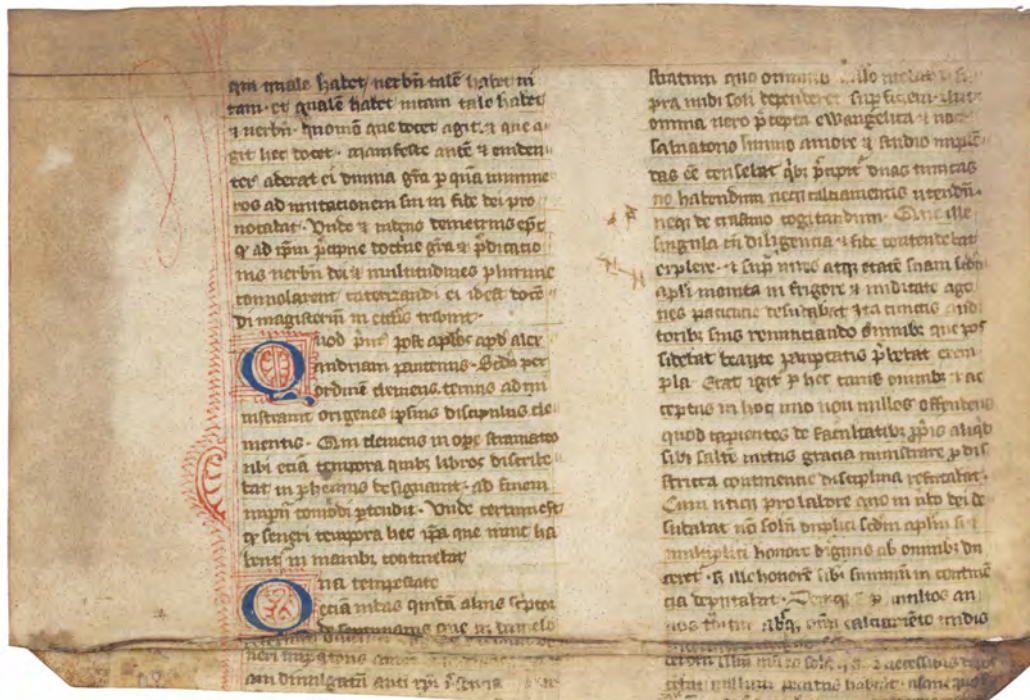 qui quale habet verbū talē habet vi
tam · et qualē habet vitam tale habet
⁊ verbū · quomō que docet agit · ⁊ que a
git hec docet · manifeste autē ⁊ euiden
ter aderat ei diuina gr̄a ꝑ quā innume
ros ad imitationem sui in fide dei pro
uocabat · Vnde ⁊ videns demetrius epc̄
ꝙ ad ip̄m p̄cipue doctīe gr̄a ⁊ p̄dicatio
nis verbū dei ⁊ multitudines plurime
conuolarent catezizandi ei idest docē
di magisteriū in ecclīs tribuit ·
Quod p̄mꝰ post aplōs apd̄ alex
andriam pantenus · Scd̄o per
ordinē clemens · terciꝰ admi
nistrauit origenes ipsius discipulus cle
mentis · Qm̄ clemens in oꝑe stramateo
tibi eciā tempora quibꝫ libros discribe
bat in ꝓhemiis designauit · ad finem
imꝑii comodi ꝓtendit · Vnde certum est
ꝙ seueri tempora hec ip̄a que nunc ha
bent᷑ in manibꝫ continebat
Qua tempestate
eciā iudas quidā aliꝰ sc̄ptor
de septimanis que in daniele
neri imꝑatoris
am diuulgatū anti xp̄i
suatum quo omnino
pra nudi soli dependeret suꝑficiem ·
omnia vero p̄cepta ewangelica ⁊ voce
saluatoris summo amore ⁊ studio implē
das eē censebat qͥbꝫ p̄cipit᷑ duas tunicas
nō habendum nec calciamentis vtendū ·
neqꝫ de crastino cogitandum · Que ille
singula cū diligencia ⁊ fide contendebat
explere · ⁊ suꝑ vires atqꝫ etatē suam scd̄m
apl̄i monita in frigore ⁊ nuditate ago
nes paciencie desudabat ⁊ ita cunctis audi
toribꝫ suis renunciando omnibꝫ que pos
sidebat beate pauꝑtatis p̄bebat exem
pla · Erat igit᷑ ꝓ hec carus omnibꝫ ⁊ ac
ceptus in hoc vno non nullos offendens
quod cupientes de facultatibꝫ ꝓpͥis aliqͥd
sibi saltē victus gracia ministrare ꝓ dis
stricta continencie disciplina refutabat ·
Cum vtiqꝫ pro labore quo in v̄bo dei de
sudabat nō solū duplici scd̄m apl̄m sꝫ ⁊
multiplici honore dignus ab omnibꝫ du
ceret᷑ · sꝫ ille honorē sibi summū in contine
cia deputabat · Deniqꝫ ꝑ multos an
nos absqꝫ om̄i calciamēto nudis